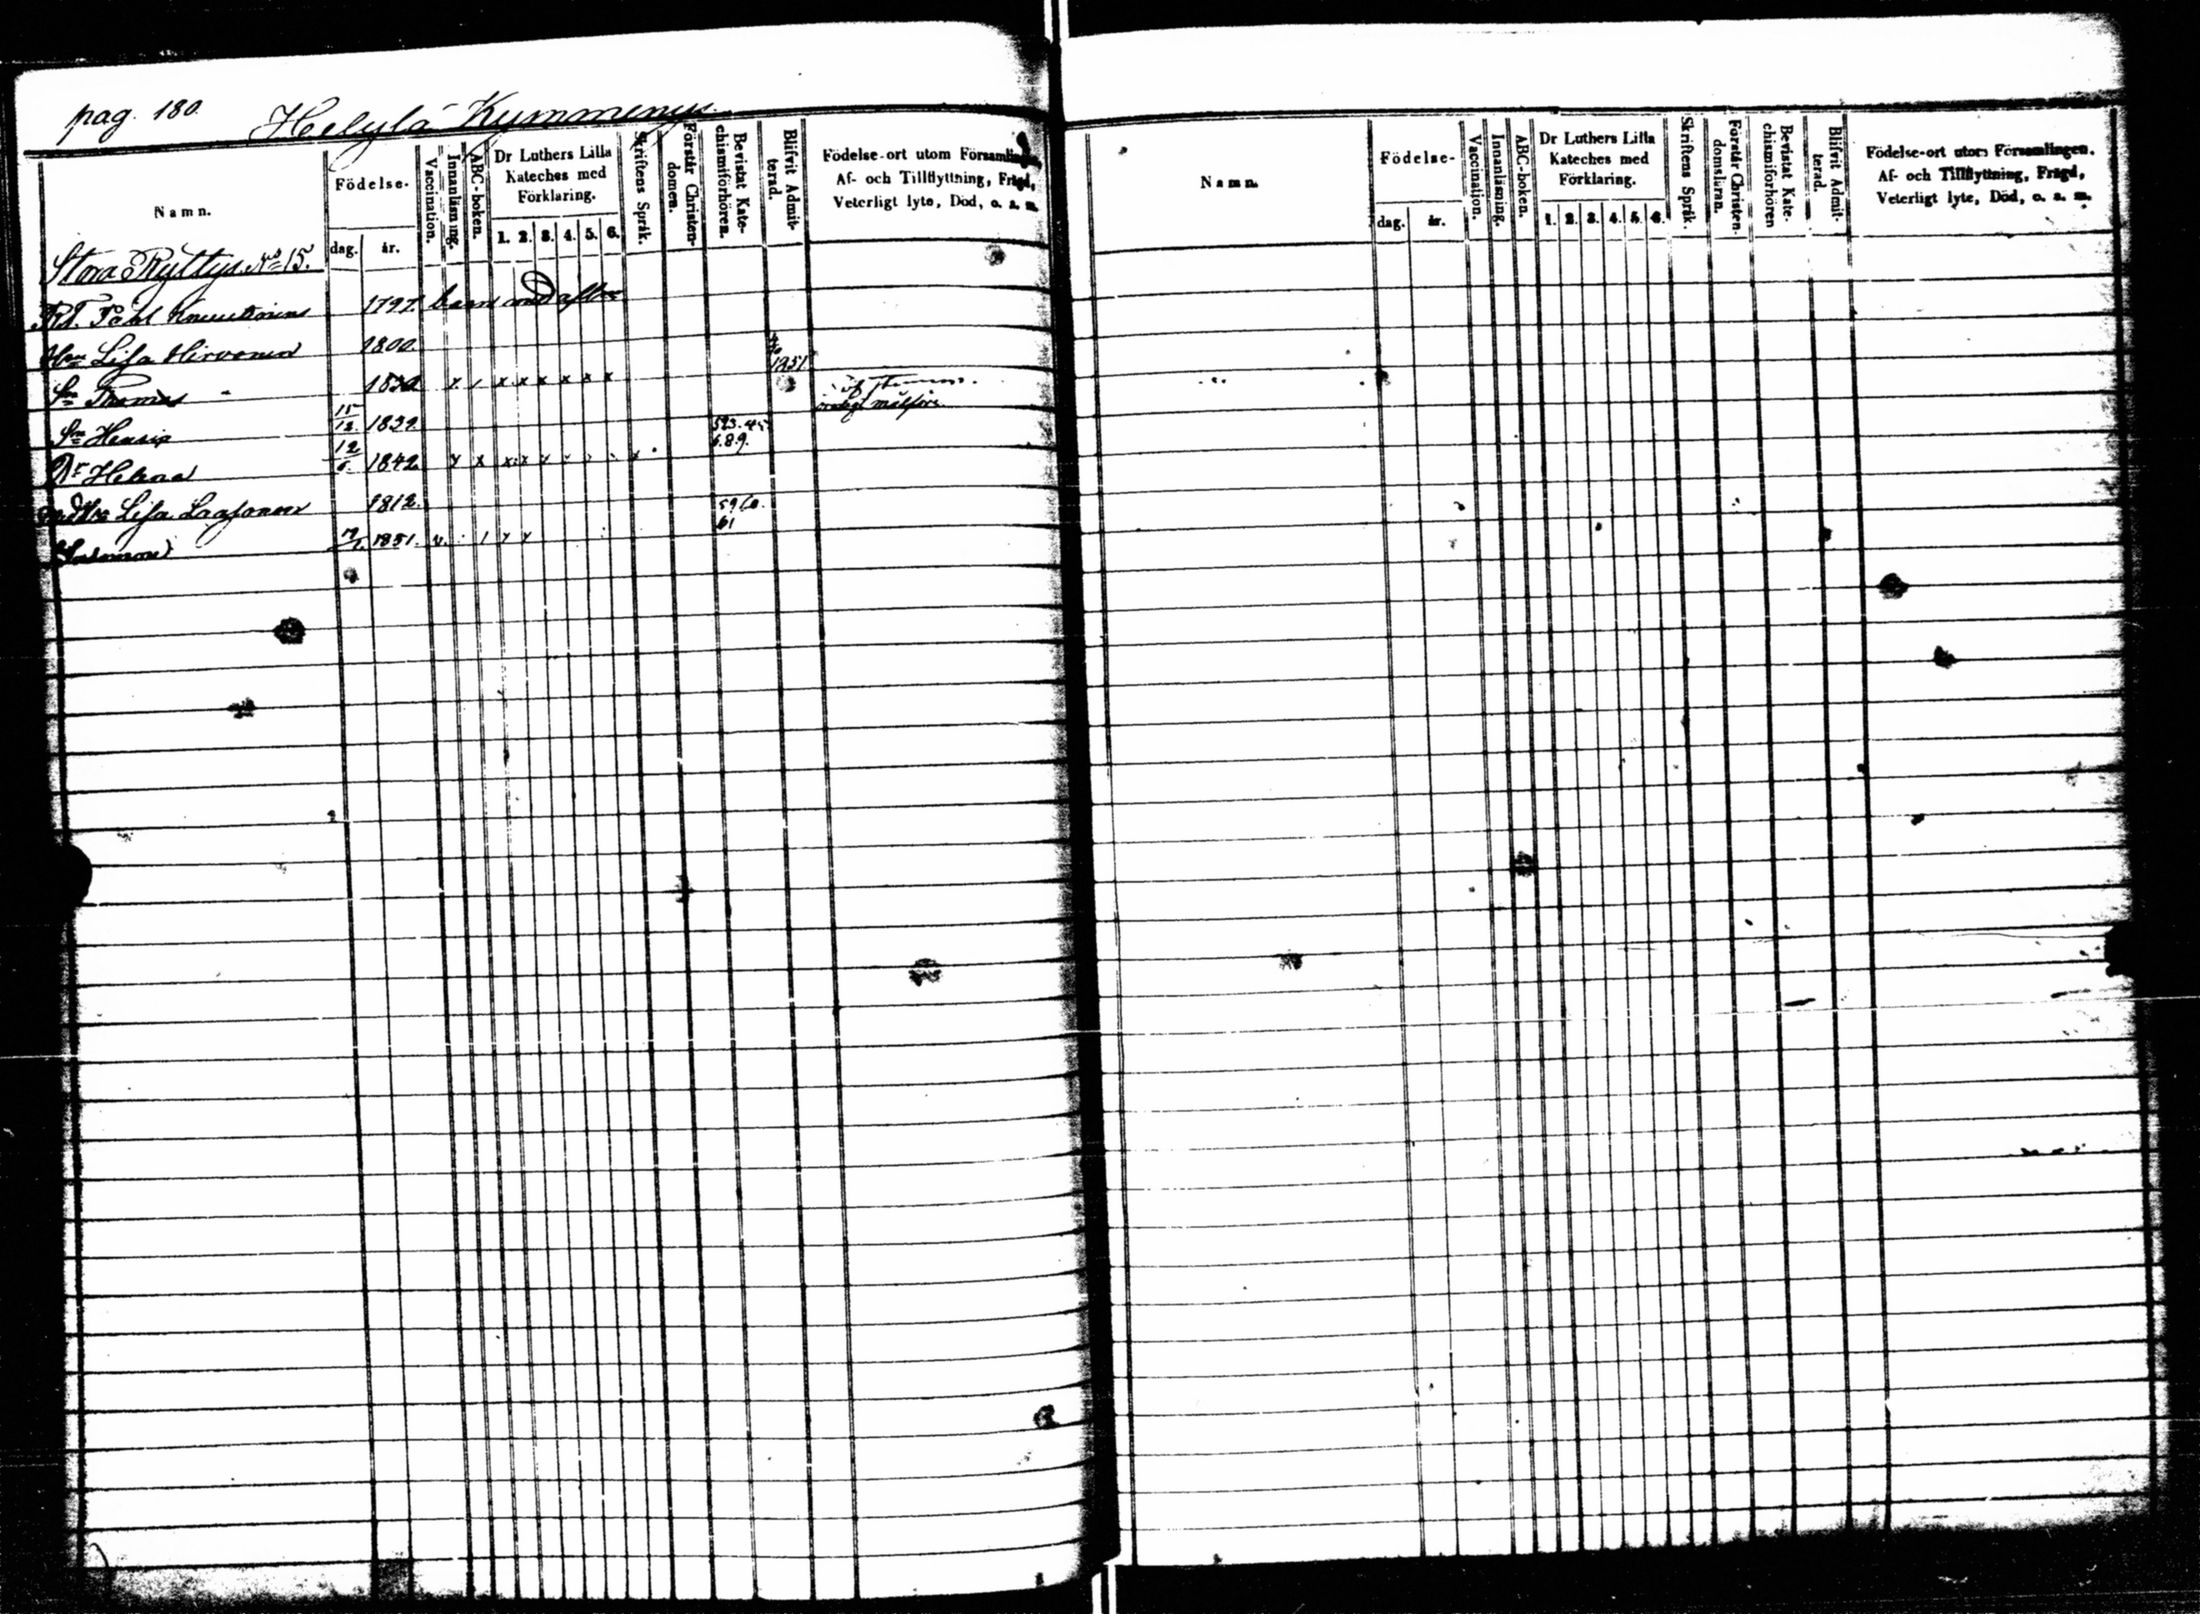 pag. 180. Helylä Kymmenys.
Namn.
Födelse-
dag. år.
Vaccination.
Innanläsning.
ABC-boken.
Dr Luthers Lilla
Kateches med
Förklaring.
1. 2. 3. 4. 5. 6.
Skriftens Språk.
Förstår Christen-
domen.
Bevistat Kate-
chismiförhören.
Blifvit Admit-
terad.
Födelse-ort utom Församlingen,
Af- och Tillflyttning, Frägd,
Veterligt lyte, Död, o. s. m.
Stora Ryttys No 15.
Påhl 1797. barn med
Lisa Hirvonen 1800.
1851
Sn Thomas 1830 x / x x x x x x
Sn Henric 15/12 1839.
6.8.9.
Dr Helena 12 1842. x x x x x
Lisa Laasonen 1812.
61
Salomon 1851.
Namn.
Födelse-
dag. år.
Vaccination.
Innanläsning.
ABC-boken.
Dr Luthers Lilla
Kateches med
Förklaring.
1. 2. 3. 4. 5. 6.
Skriftens Språk.
Förstår Christen-
domsläran.
Bevistat Kate-
chismiförhören
Blifvit Admit-
terad.
Födelse-ort utom Församlingen.
Af- och Tillflyttning, Frägd,
Veterligt lyte, Död, o. s. m.